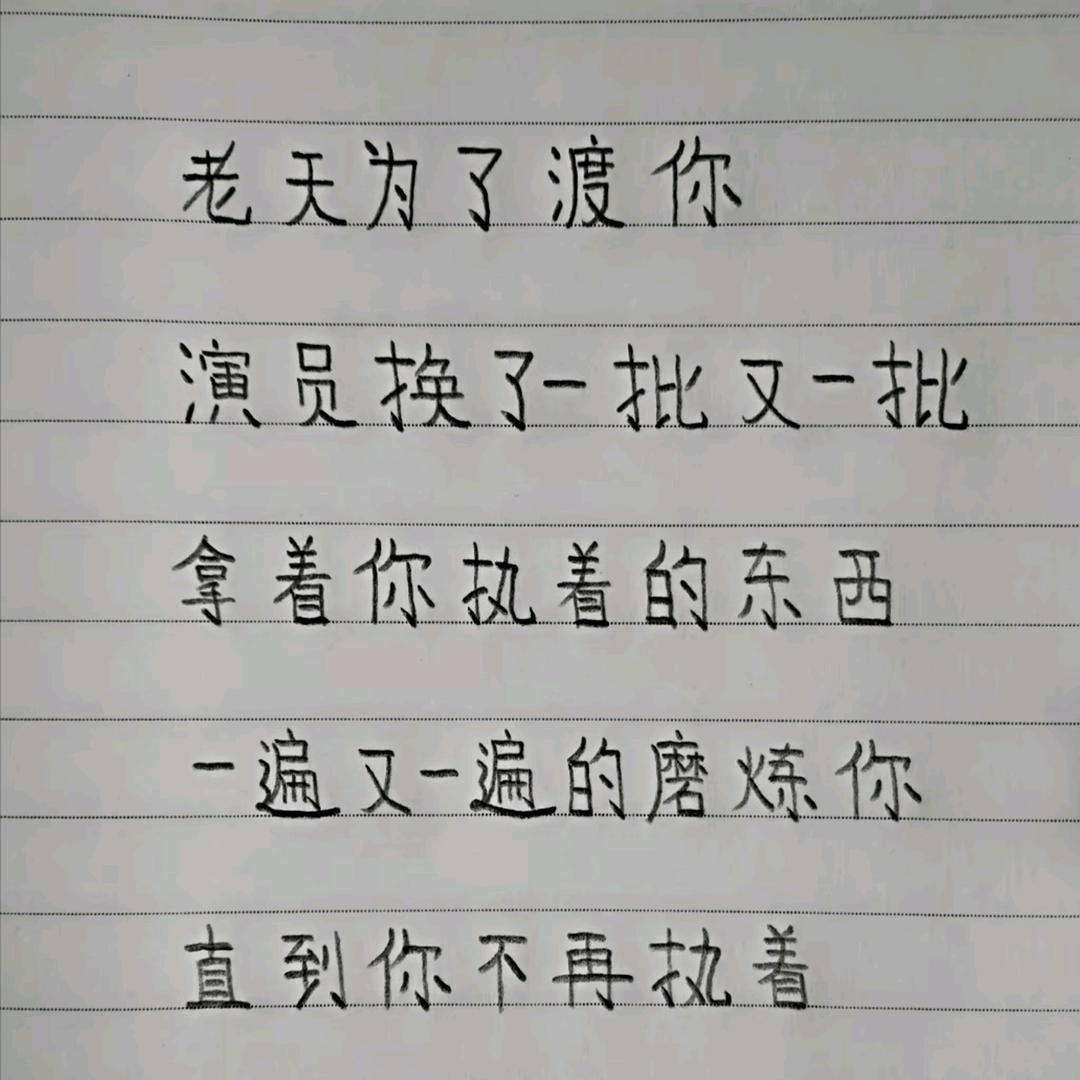 老天为了渡你
演员换了一批又一批
拿着你执着的东西
一遍又一遍的磨炼你
直到你不再执着